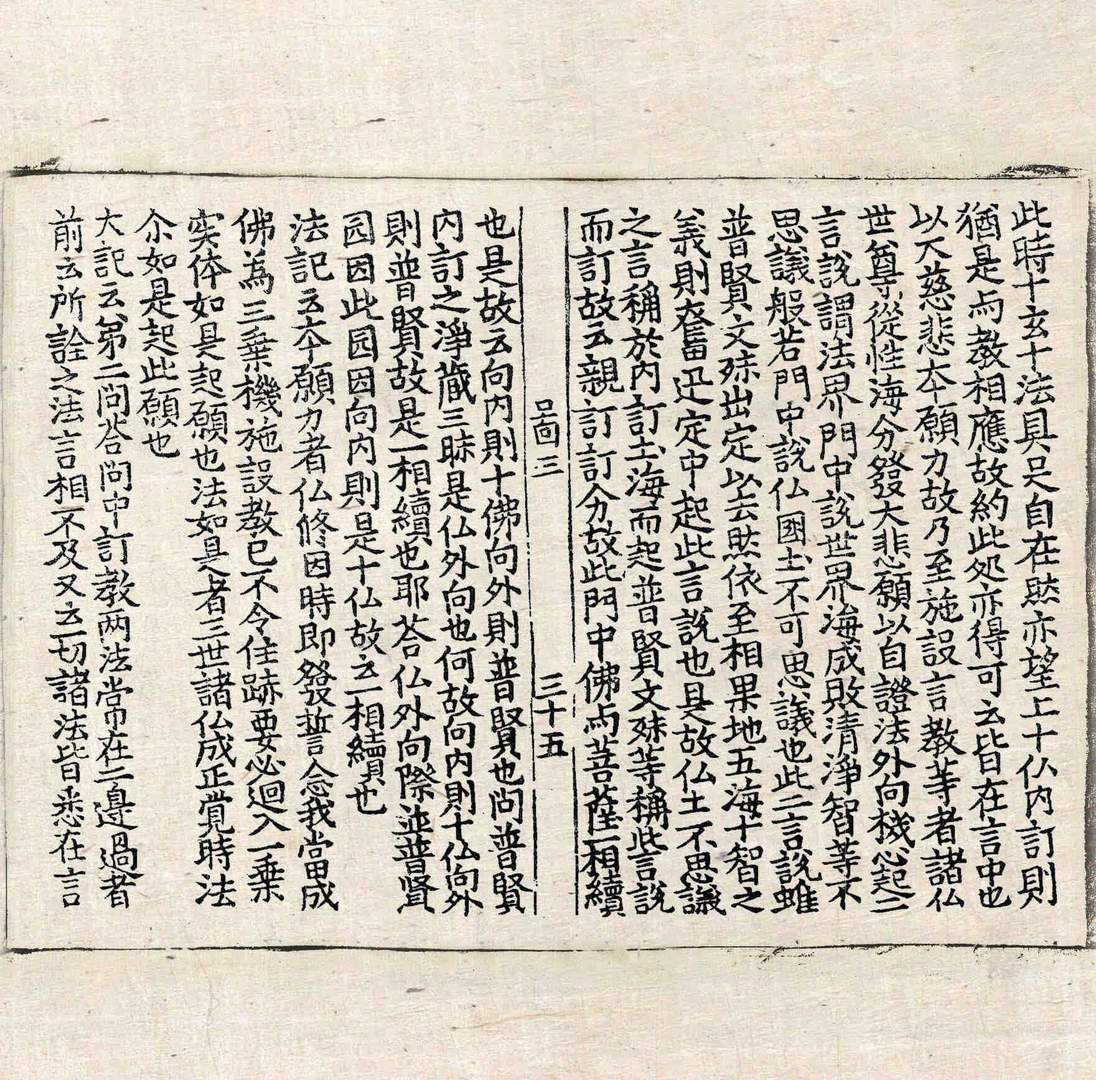 此時十玄十法具足自在然亦望上十仏内訂則
猶是与教相應故約此処亦得可云皆在言中也
以大慈悲本願力故乃至施設言教等者諸仏
世尊從性海分發大悲願以自證法外向機心起二
言說謂法界門中說世界海成敗清淨智等不
思議般若門中說仏國土不可思議也此二言說雖
普賢文殊出定以去然依至相果地五海十智之
義則奮迅定中起此言說也是故仏土不思議
之言稱於内訂土海而起普賢文殊等稱此言說
而訂故云親訂訂分故此門中佛与菩薩一相續
三十五
也是故云向内則十佛向外則普賢也問普賢
内訂之淨藏三昧是仏外向也何故向内則十仏向外
則普賢故是一相續也耶荅仏外向際並普賢
园因此园因向内則是十仏故云一相續也
法記云本願力者仏修因時即發誓言念我當成
佛為三乗機施設教已不令住跡要必迴入一乗
实体如是起願也法如是者三世諸仏成正覚時法
尒如是起此願也
大記云第二問荅問中訂教两法常在二邊過者
前云所詮之法言相不及又云一切諸法皆悉在言